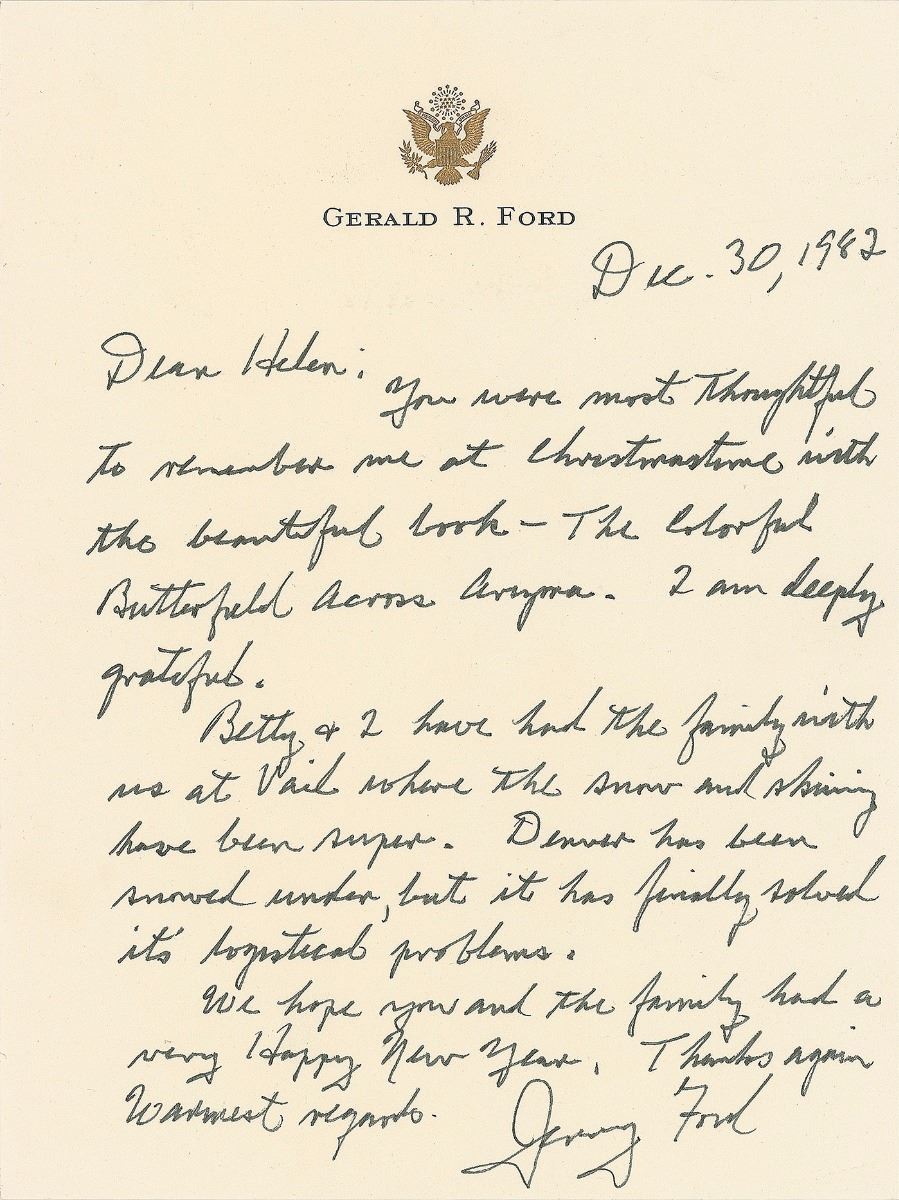 GERALD R. FORD
Dec. 30, 1982
Dear Helen:
You were most thoughtful
to remember me at Christmastime with
the beautiful book – The Colorful
Butterfield Across Arizona. I am deeply
grateful.
Betty & I have had the family with
us at Vail where the snow and skiing
have been super. Denver has been
snowed under, but it has finally solved
it's logistical problems.
We hope you and the family had a
very Happy New Year. Thanks again
Warmest regards.
Jerry Ford